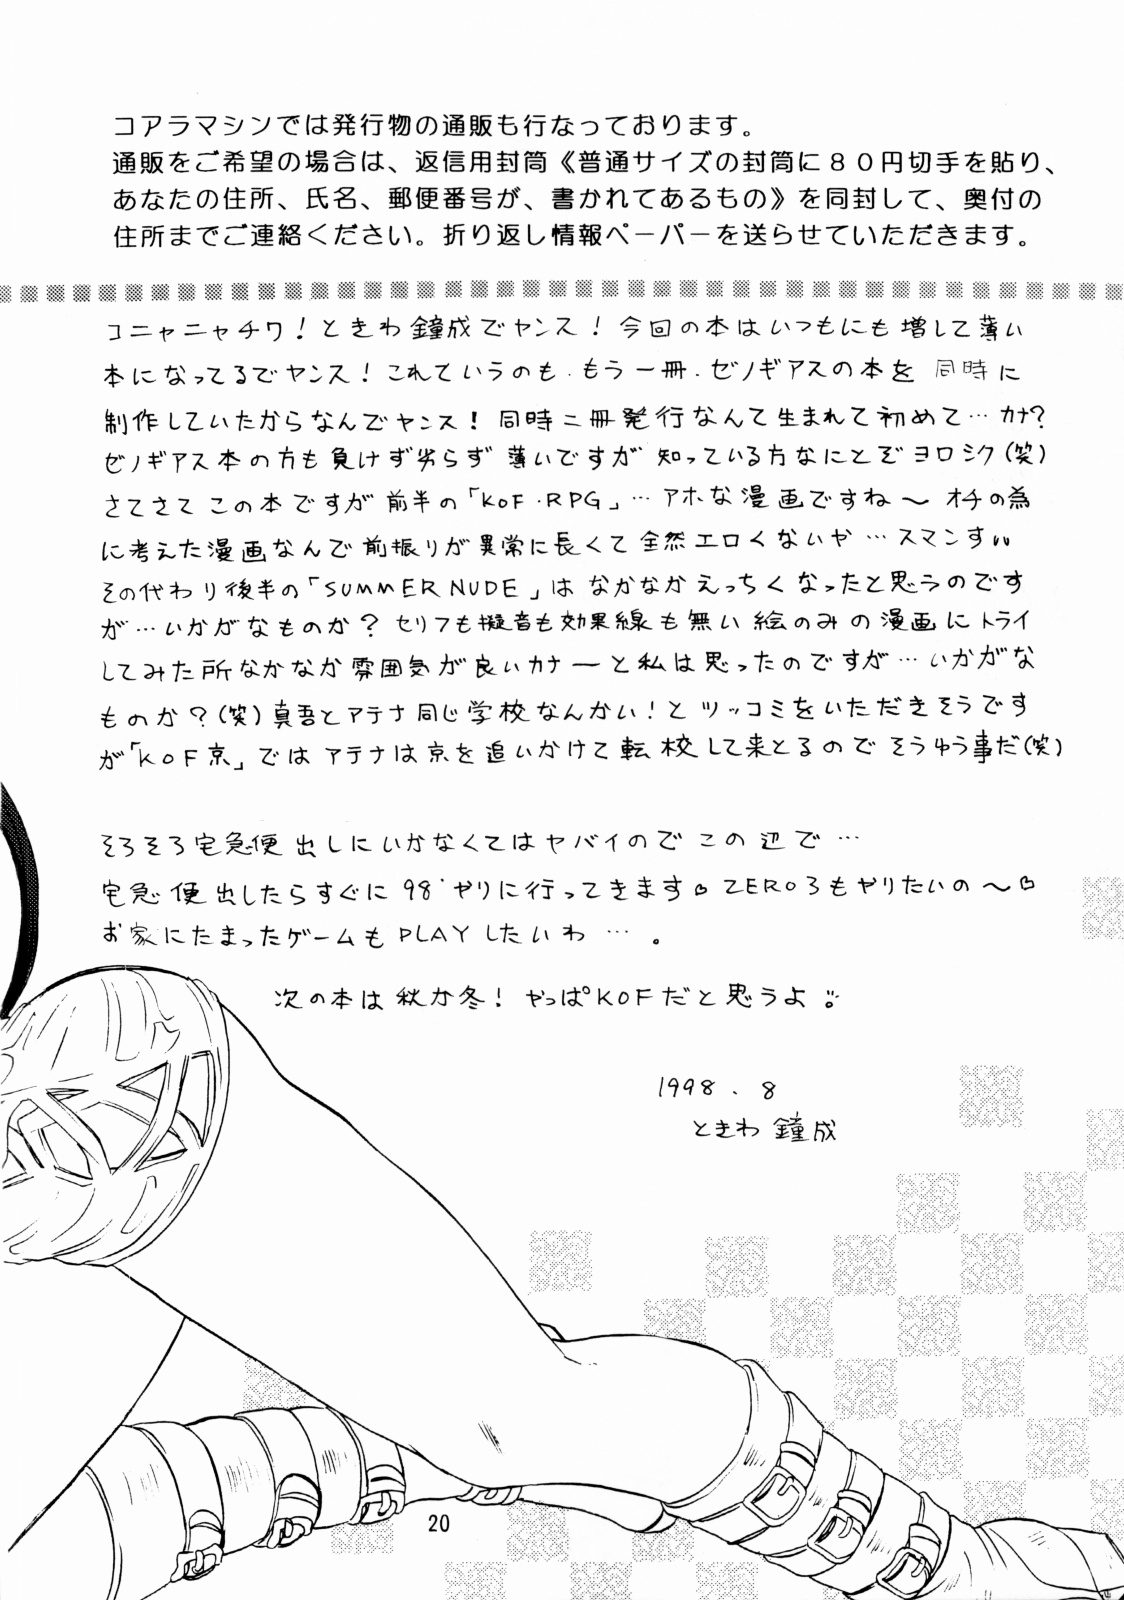 コアラマシンでは発行物の通販も行なっております。
通販をご希望の場合は、返信用封筒《普通サイズの封筒に８０円切手を貼り、
あなたの住所、氏名、郵便番号が、書かれてあるもの》を同封して、奥付の
住所までご連絡ください。折り返し情報ペーパーを送らせていただきます。
コニャニャチワ！ときわ鐘成でヤンス！今回の本はいつもにも増して薄い
本になってるでヤンス！これていうのも．もう一冊．ゼノギアスの本を 同時に
制作していたからなんでヤンス！同時二冊発行なんて生まれて初めて…カナ？
ゼノギアス本の方も負けず劣らず薄いですが知っている方なにとぞヨロシク（笑）
さてさてこの本ですが前半の「KOF・RPG」…アホな漫画ですね〜オチの為
に考えた漫画なんで前振りが異常に長くて全然エロくないや…スマンすい
その代わり後半の「SUMMER NUDE」はなかなかえっちくなったと思うのです
が…いかがなものか？セリフも擬音も効果線も無い絵のみの漫画にトライ
してみた所なかなか雰囲気が良いカナーと私は思ったのですが…いかがな
ものか？（笑）真吾とアテナ同じ学校なんかい！とツッコミをいただきそうです
が「KOF京」ではアテナは京を追いかけて転校して来とるのでそうゆう事だ（笑）
そろそろ宅急便出しにいかなくてはヤバイのでこの辺で…
宅急便出したらすぐに98'やりに行ってきます♡ZERO3もやりたいの〜♡
お家にたまったゲームもPLAYしたいわ…。
次の本は秋か冬！やっぱKOFだと思うよ
1998．8
ときわ 鐘成
20